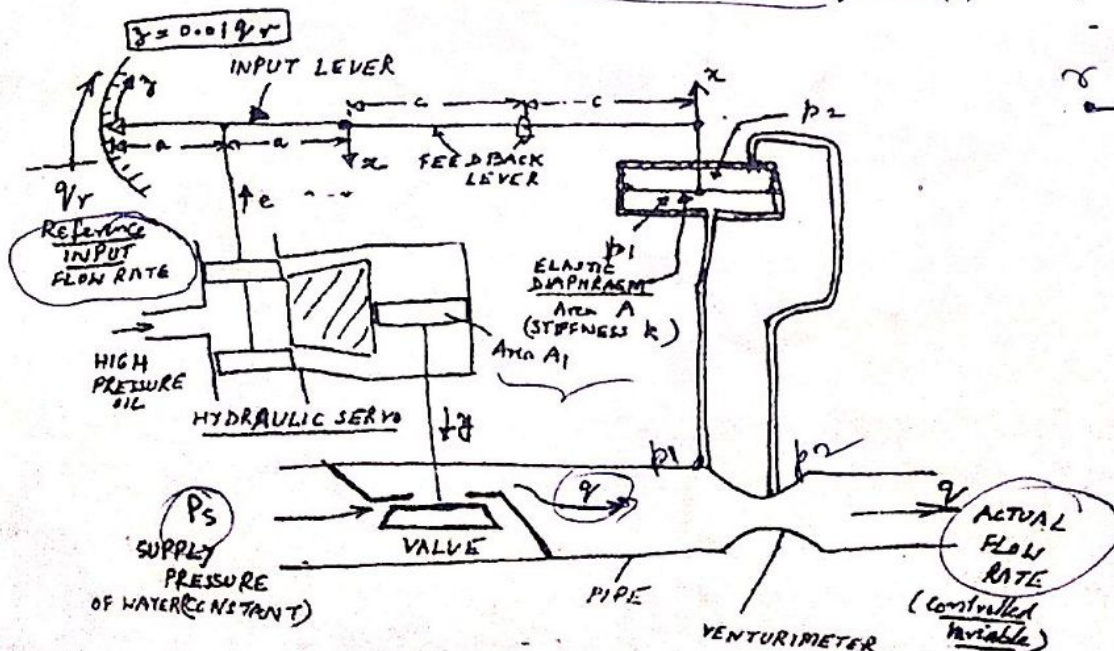 z = 0.01 qr
INPUT LEVER
z
a
a
c
c
x
x
FEEDBACK
LEVER
p2
r
qr
Reference
INPUT
FLOW RATE
e
p1
ELASTIC
DIAPHRAGM
Area A
(STIFFNESS k)
Area A1
HIGH
PRESSURE
OIL
HYDRAULIC SERVO
y
p1
p2
Ps
SUPPLY
PRESSURE
OF WATER (CONSTANT)
VALVE
q
PIPE
VENTURIMETER
q
ACTUAL
FLOW
RATE
(Controlled
Variable)